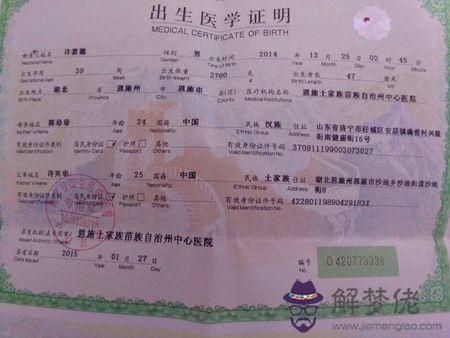 出生医学证明
MEDICAL CERTIFICATE OF BIRTH
新生儿姓名 许嘉懿 性别 男 出生时间 2014 年 12 月 25 日 02 时 45 分
Neonatal Name Gender Time of Birth Year Month Day Hour Minute
出生孕周 38 周 出生体重 2700 克 出生身长 47 厘米
Gestational Age Week Birth Weight g Birth Length cm
出生地点 湖北 省 恩施州 市 恩施市 县(区) 医疗机构名称 恩施土家族苗族自治州中心医院
Place of Birth Province City County Medical Institutions
母亲姓名 陈珍珍 年龄 24 国籍 中国 民族 汉族 住址
Mother's Name Age Nationality Ethnic Group Address
有效身份证件类别 居民身份证 护照 其他 有效身份证件号码 370811199003073027
Valid Identification Identity Card Passport Others Valid Identification No.
父亲姓名 许兴华 年龄 25 国籍 中国 民族 土家族 住址 湖北恩施州恩施市沙地乡沙地街道沙地街8
Father's Name Age Nationality Ethnic Group Address
有效身份证件类别 居民身份证 护照 其他 有效身份证件号码
Valid Identification Identity Card Passport Others Valid Identification No.
签发机构(盖专用章) 恩施土家族苗族自治州中心医院
Issued Authority
签发日期 2015 年 01 月 27 日
Date Issued Year Month Day
编号 O 420773338
No. of Birth
解梦佬
www.jiemenglao.com